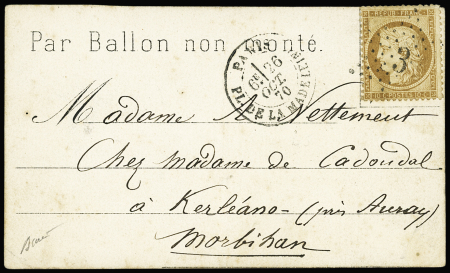 REPUB. FRANC.
3
Par Ballon non monté.
PARIS
6E 26
OCT.
70
PL. DE LA MADELEINE
Madame A. Nettement
Chez madame de Cadoudal
à Kerléano (près Auray)
Morbihan